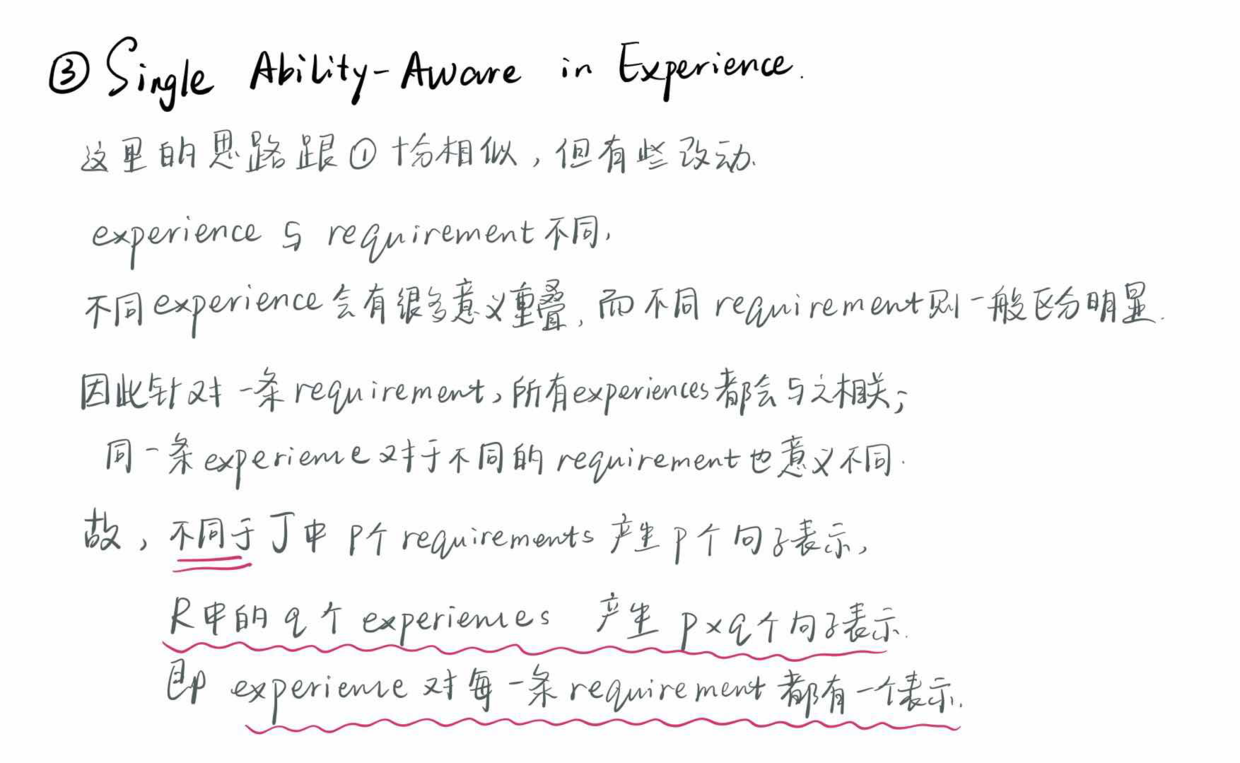 ③ Single Ability-Aware in Experience.
这里的思路跟①十分相似，但有些改动.
experience 与 requirement 不同，
不同 experience 会有很多意义重叠，而不同 requirement 则一般区分明显.
因此针对一条 requirement，所有 experiences 都会与之相关；
同一条 experience 对于不同的 requirement 也意义不同.
故，不同于 J 中 p个 requirements 产生 p 个句子表示，
R 中的 q 个 experiences 产生 p×q 个句子表示.
即 experience 对每一条 requirement 都有一个表示.